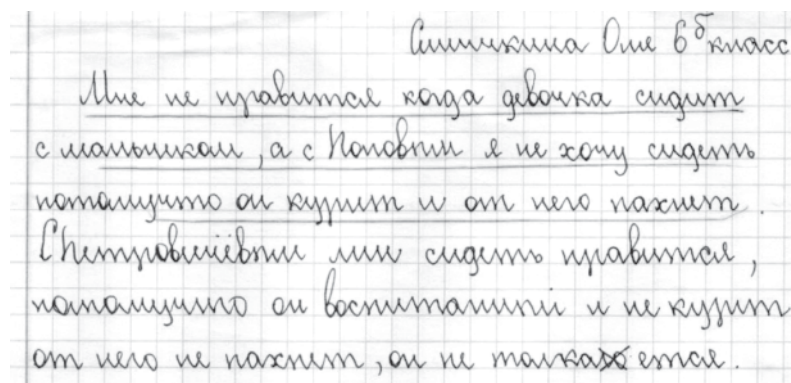 Синичкина Оля 6 б класс
Мне не нравится когда девочка сидит
с мальчиком, а с Поповым я не хочу сидеть
потомучто он курит и от него пахнет.
С Петровичёвым мне сидеть нравится,
потомучто он воспитаный и не курит
от него не пахнет, он не толкается.